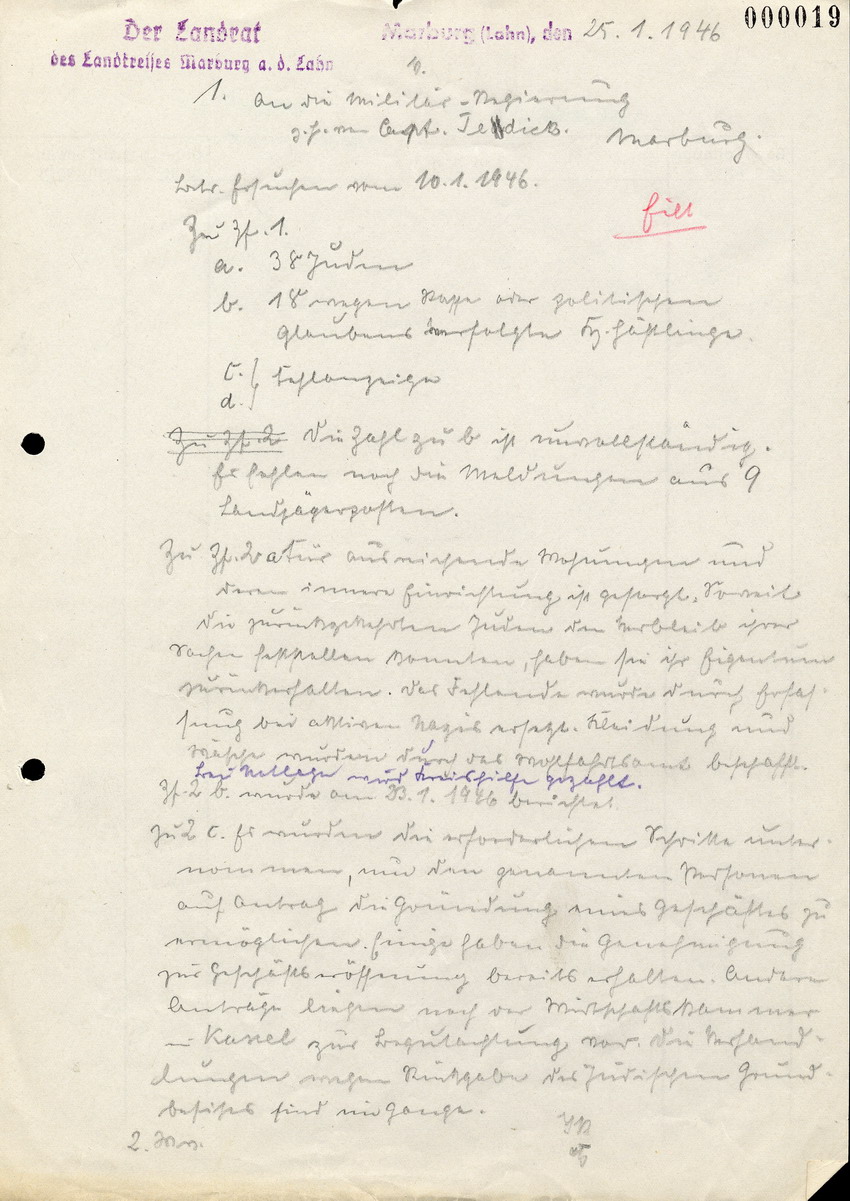 000019
Der Landrat
des Landkreises Marburg a. d. Lahn
Marburg (Lahn), den 25.1.1946
1. An die Militär-Regierung
z.H. von Capt. Teddick.
Marburg.
Betr. Ersuchen vom 10.1.1946.
Eilt
Zu Zf. 1.
a. 38 Juden
b. 18 wegen Rasse oder politischen
Glaubens verfolgte Kz. Häftlinge.
c. }
d. } Fehlanzeige
Zu Zf. 2 Die Zahl zu b ist unvollständig.
Es fehlen noch die Meldungen aus 9
Landjägerposten.
Zu Zf. 2 a Für ausreichende Wohnungen und
deren innere Einrichtung ist gesorgt. Soweit
die zurückgekehrten Juden den Verbleib ihrer
Sachen feststellen konnten, haben sie ihr Eigentum
zurückerhalten. Das Fehlende wurde durch Erfas-
sung bei aktiven Nazis ersetzt. Kleidung und
Wäsche wurden durch das Wohlfahrtsamt beschafft.
Bei Notlage wird Kreishilfe gezahlt.
Zf. 2 b. wurde am 23.1.1946 berichtet.
Zu 2 c. Es wurden die erforderlichen Schritte unter-
nommen, um den genannten Personen
auf Antrag die Gründung eines Geschäftes zu
ermöglichen. Einige haben die Genehmigung
zur Geschäftseröffnung bereits erhalten. Andere
Anträge liegen noch der Wirtschaftskammer
in Kassel zur Begutachtung vor. Die Verhand-
lungen wegen Rückgabe des Jüdischen Grund-
besitzes sind im Gange.
2. Wv.